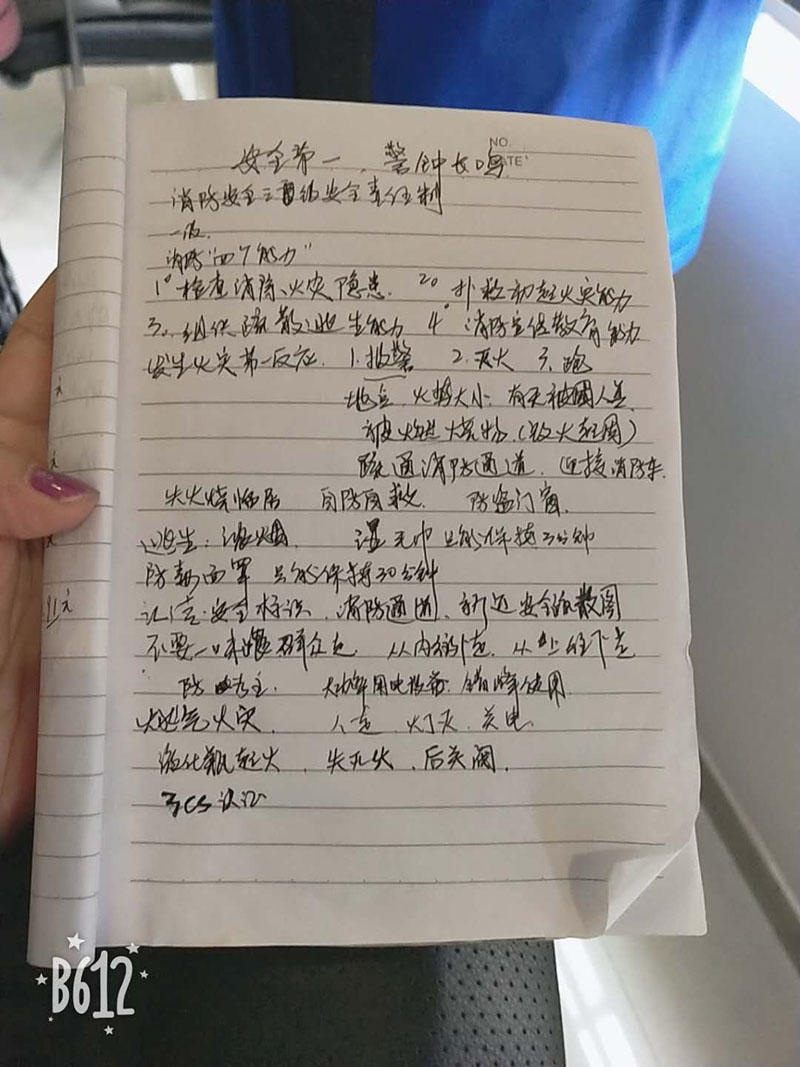 NO.
DATE
安全第一、警钟长鸣
消防安全三级安全责任制
一级.
消防"四个能力"
1° 检查消除火灾隐患. 2° 扑救初起火灾能力
3. 组织疏散逃生能力 4° 消防宣传教育能力
发生火灾第一反应. 1. 报警 2. 灭火 3. 跑
地点. 火势大小. 有无被困人员.
被燃烧物. (起火范围)
疏通消防通道. 迎接消防车.
失火烧临居 自防自救. 防盗门窗.
逃生: 浓烟. 湿毛巾 只能保持3分钟
防毒面罩 只能保持30分钟
认清: 安全标识. 消防通道. 就近安全疏散图
不要一味跟群众走. 从内往外走. 从上往下走
防为主. 大功率用电设备. 错峰使用.
燃气火灾. 人走. 灯灭. 关电.
液化瓶起火. 先灭火. 后关阀.
3CS认证
91
B612